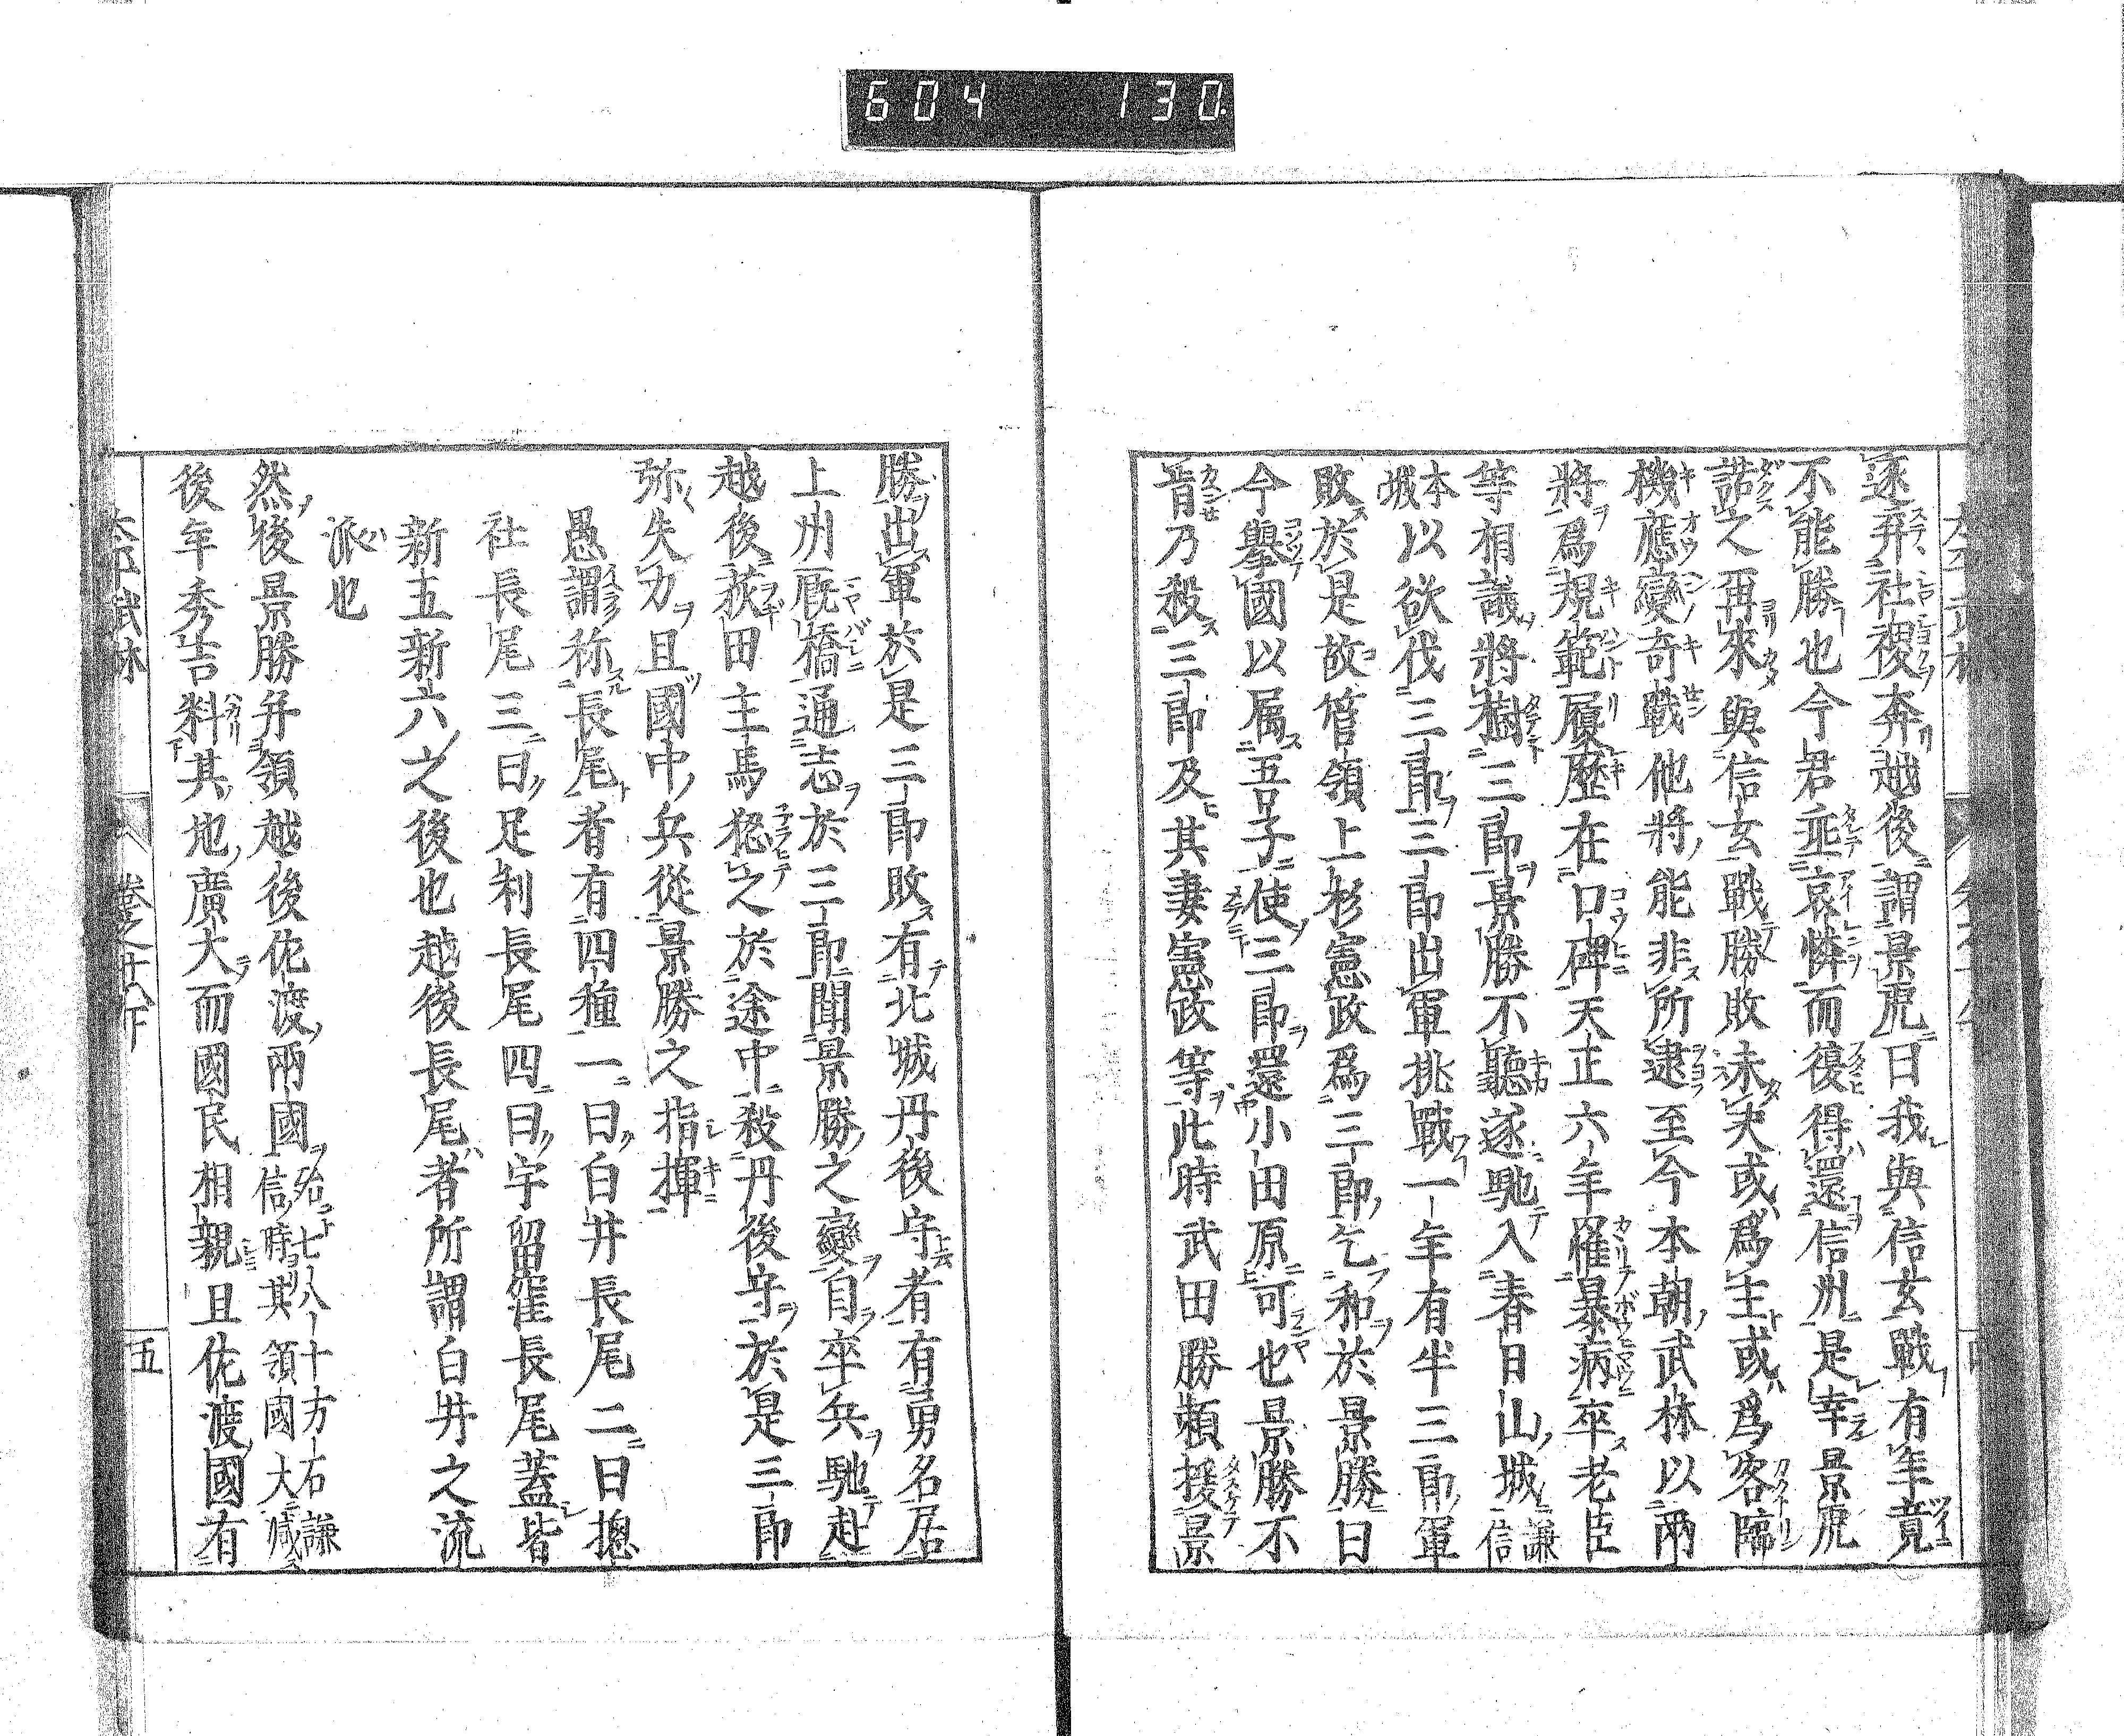 604 130.
逐弃社稷奔越後謂景虎曰我與信玄戰有年竟
不能勝也今君亟哀憐而復得還信州是幸景虎
諾之再來與信玄戰勝敗未决或爲主或爲客臨
機應變奇戰他將能非所逮至今本朝武林以兩
將爲規範履歷在口碑天正六年罹暴病卒老臣
等相議將樹三郎景勝不聽遂馳入春日山城謙信
本城以欲伐三郎三郎出軍挑戰一年有半三郎軍
敗於是故管領上杉憲政爲三郎乞和於景勝曰
今擧國以属五子使三郎還小田原可也景勝不
肯乃殺三郎及其妻憲政等此時武田勝頼援景
勝出軍於是三郎敗有北城丹後守者有勇名居
上州厩橋通志於三郎聞景勝之變自卒兵馳赴
越後荻田主馬
之於途中殺丹後守於是三郎
弥失力且國中兵從景勝之指揮
愚謂称長尾者有四種一曰白井長尾二曰揔
社長尾三曰足利長尾四曰宇留窪長尾蓋皆
新五新六之後也越後長尾者所謂白井之流
派也
然後景勝并領越後佐渡兩國殆七八十万石謙
信時其領國大減
後年秀吉料其地廣大而國民相親且佐渡國有
卷之十八下
五